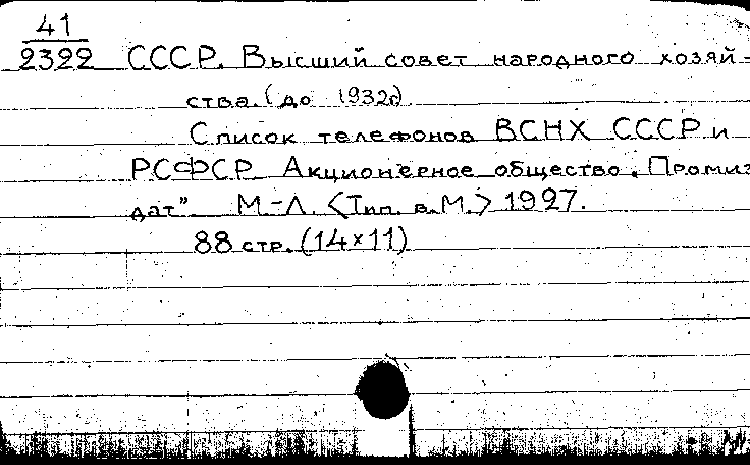 41
2322 СССР. Высший совет народного хозяй-
ства. (до 1932г)
Список телефонов ВСНХ СССР и
РСФСР Акционерное общество „Промиз
дат" М.-Л. <Тип. в.М.> 1927.
88 стр. (14х11)